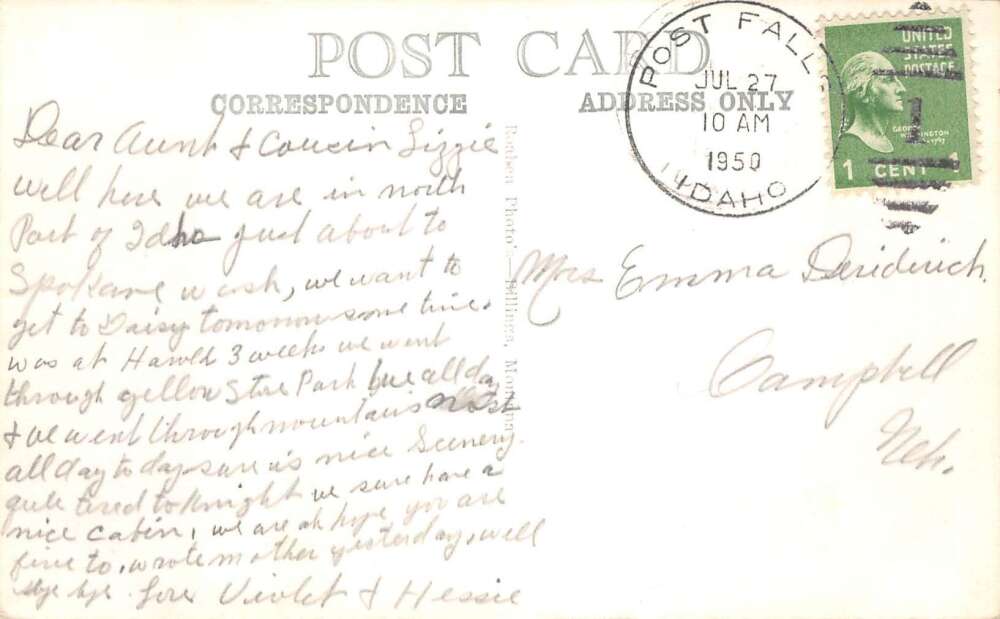 POST CARD
CORRESPONDENCE
ADDRESS ONLY
POST FALLS
JUL 27
10 AM
1950
IDAHO
UNITED
STATES
POSTAGE
1
GEORGE
WASHINGTON
1 CENT 1
Dear Aunt & Cousin Lizzie
well here we are in north
Part of Idho just about to
Spokane wash, we want to
get to Daisy tomorrow some time.
was at Harold 3 weeks we went
through yellow Stone Park all day
& we went through mountains most
all day to day sure is nice Scenery.
quite tired to Knight we sure have a
nice cabin, we are ok hope you are
fine to, wrote mother yesterday, well
bye bye. Love Violet & Hessie
Mrs Emma
Campbell
Neb.
Photo's Billings, Montana